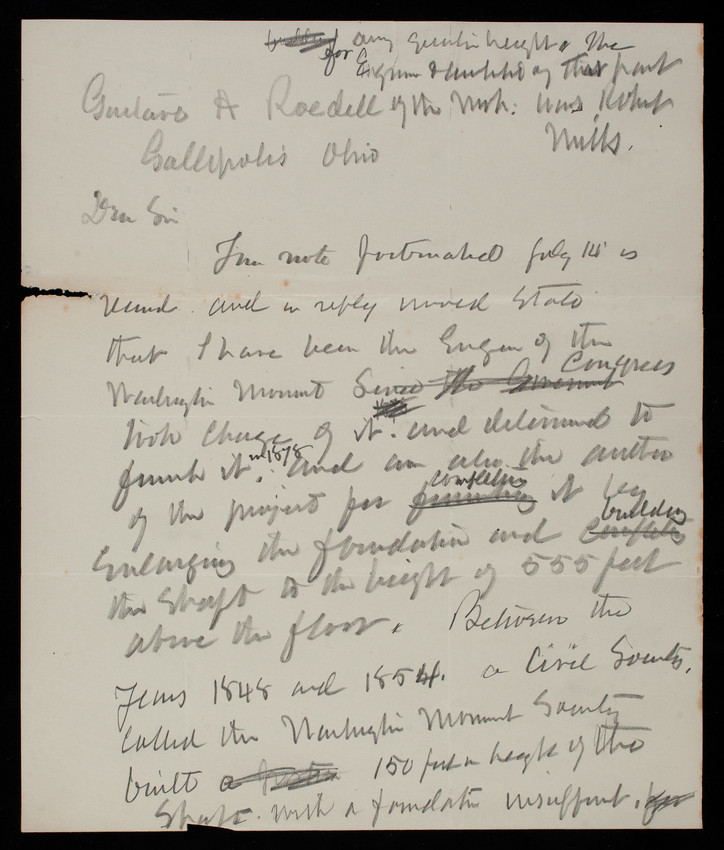 for any greater height. The
Engineer & architect of that part
of the Mon: was Robert
Mills.
Gustavo A Roedell
Gallipolis Ohio
Dear Sir
Your note postmarked July 14 is
recind. and in reply would State
that I have been the Engineer of the
Washington Monument Since the Government Congress
took charge of it. and determined to
finish it, in 1878 and am also the author
of the project for finishing completing it by
Enlarging the foundation and completing building
the Shaft to the height of 555 feet
above the floor. Between the
Years 1848 and 1854. a Civil Society,
Called the Washington Monument Society
built a 150 feet in height of the
Shaft. with a foundation insufficient.